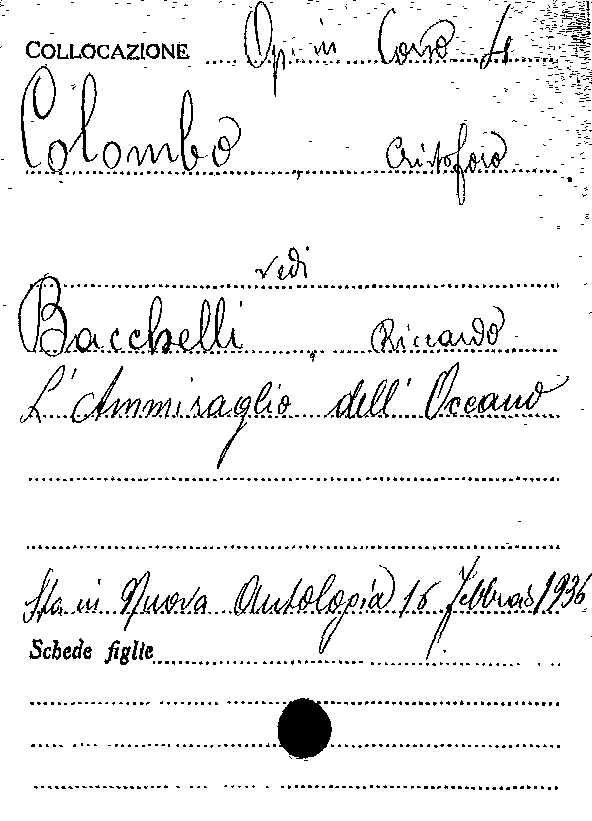 COLLOCAZIONE Op. in Corso 4
Colombo, Cristoforo
vedi
Bacchelli, Riccardo
L'Ammiraglio dell'Oceano
Sta in Nuova Antologia 16 Febbraio 1936
Schede figlie